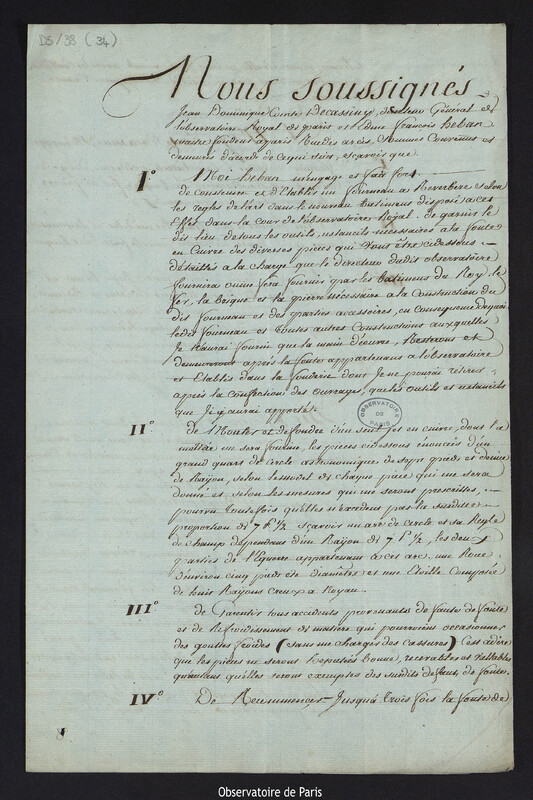 D5/38 (34)
Nous soussignés
Jean Dominique Comte Decassiny, directeur Général de
l'observatoire Royal de paris et Edme François heban
maitre fondeur a paris Sommes Convenus et
demeurés d'acord de cequi suit, scavoir que
I° Moi heban m'engage et fais fort
de construire et d'Etablir un fourneau a Reverbère selon
les regles de l'art dans le nouveau batiment disposé a cet
Effet dans la cour de l'observatoire Royal. de garnir le
dit lieu de tous les outils, ustancils nécessaires a la fonte
en Cuivre des diverses pieces qui vont être cidessous
détaillés a la charge que le directeur dudit observatoire
fournira ou me fera fournir par les batimens du Roy, le
fer, la brique et la pierre nécessaire a la Construction du
dit fourneau et des parties accessoires, en Consequence dequoi
ledit fourneau et toutes autres Constructions auxquelles
Je n'aurai fourni que la main d'œuvre, Resterons et
demeureront après la fonte appartenans a l'observatoire
et Etablis dans la fonderie dont Je ne pourai retirer
après la confection des Ouvrages, que les outils et ustancils
que J'y aurai apportés.
OBSERVATOIRE DE PARIS
II° De Mouler et de fondre d'un seul jet en cuivre, dont la
matiere me sera fournie, les pieces cidessous énoncés d'un
grand quart de Cercle astronomique de sept pieds et demie
de Raÿon, selon les model de chaque piece qui me sera
donné et selon les mesures qui me seront prescrittes,
pourvu toutefois qu'elles n'excedent pas la susditte
proportion de 7 P. ½ Scavoir un arc de Cercle et sa Regle
de Champ dependant d'un Raÿon de 7 P. ½, les deux
parties de l'Equerre appartenant a cet arc, une Roue
d'environ cinq pieds de diamêtre et une Etoille Composée
de huit Rayons Creux a Noyau.
III° de Garentir tous accidents provenants de faute de fonte
et de Refroidissement de matiere qui pourroient occasionner
des goutes froides (sans me charger des cassures) c'est adire
que les pieces ne seront Reputées bonne, recevables et vallables
qu'autant qu'elles seront exemptes des susdits defauts de fonte.
IV° De Recommencer Jusqu'à trois fois la fonte de
Observatoire de Paris